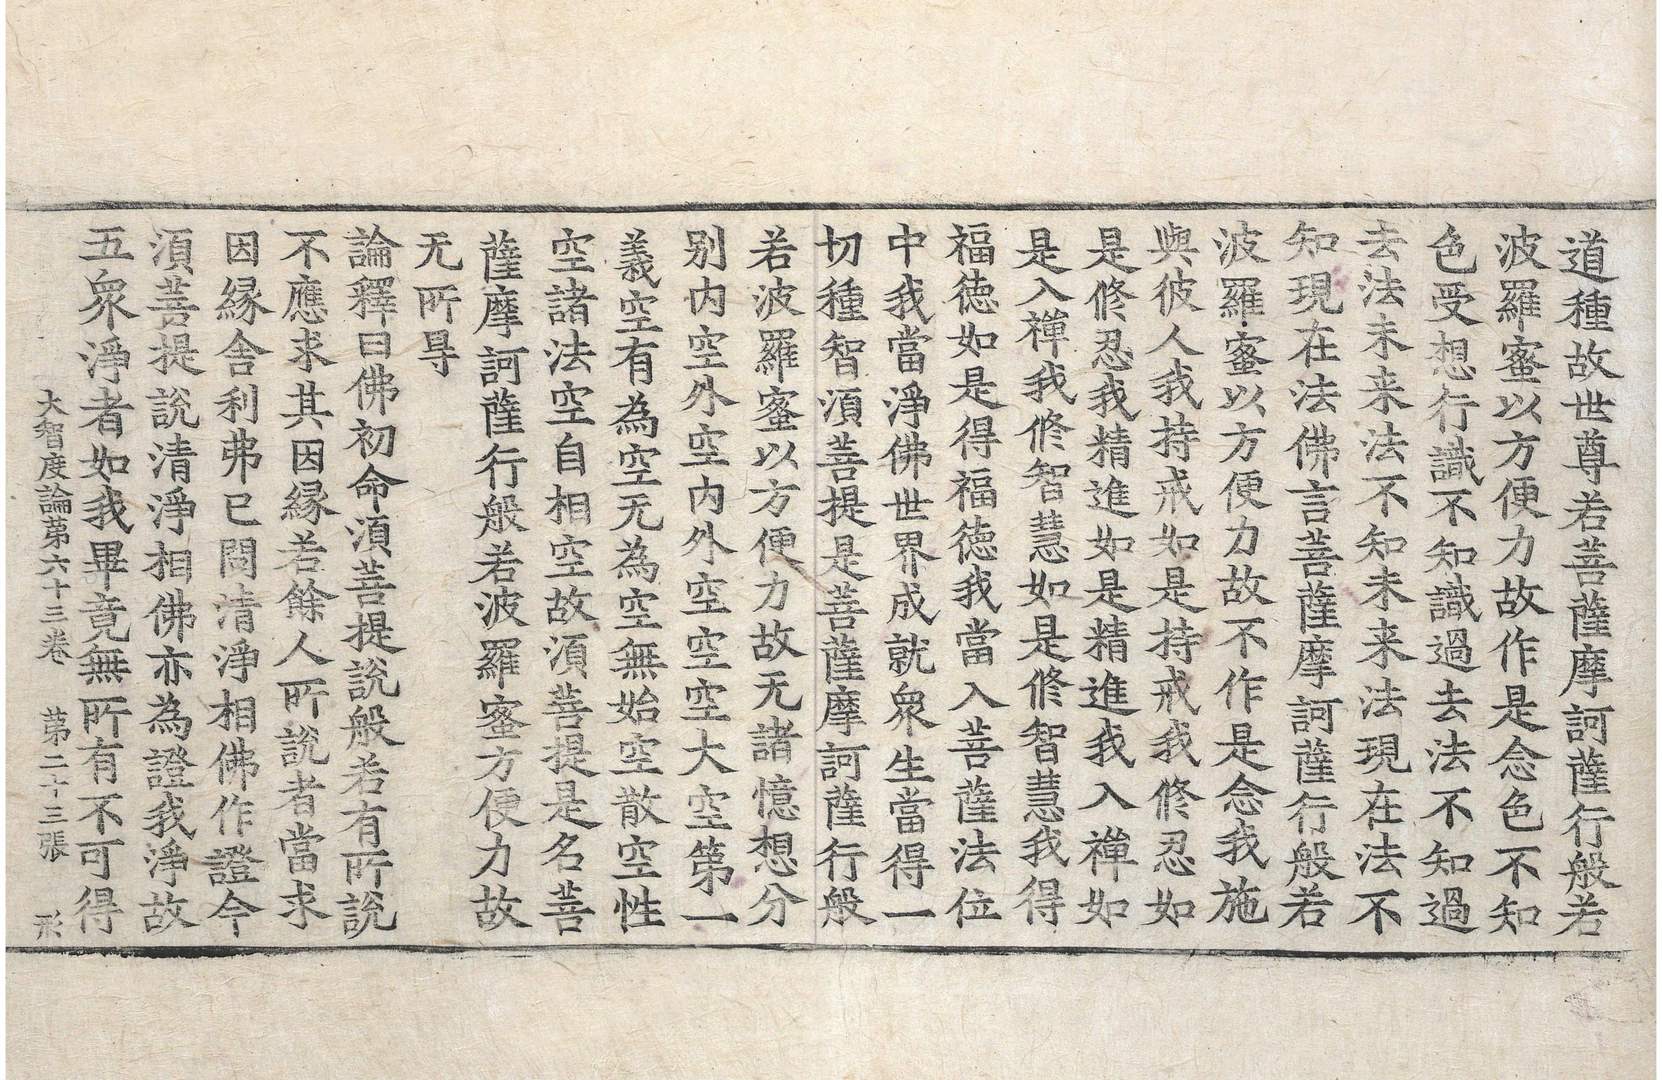 道種故世尊若菩薩摩訶薩行般若
波羅蜜以方便力故作是念色不知
色受想行識不知識過去法不知過
去法未来法不知未来法現在法不
知現在法佛言菩薩摩訶薩行般若
波羅蜜以方便力故不作是念我施
與彼人我持戒如是持戒我修忍如
是修忍我精進如是精進我入禪如
是入禪我修智慧如是修智慧我得
福徳如是得福徳我當入菩薩法位
中我當淨佛世界成就衆生當得一
切種智須菩提是菩薩摩訶薩行般
若波羅蜜以方便力故无諸憶想分
別内空外空内外空空空大空第一
義空有為空无為空無始空散空性
空諸法空自相空故須菩提是名菩
薩摩訶薩行般若波羅蜜方便力故
无所㝵
論釋曰佛初命須菩提說般若有所說
不應求其因緣若餘人所說者當求
因緣舍利弗已問清淨相佛作證今
須菩提說清淨相佛亦為證我淨故
五衆淨者如我畢竟無所有不可得
大智度論第六十三卷 第二十三張 形